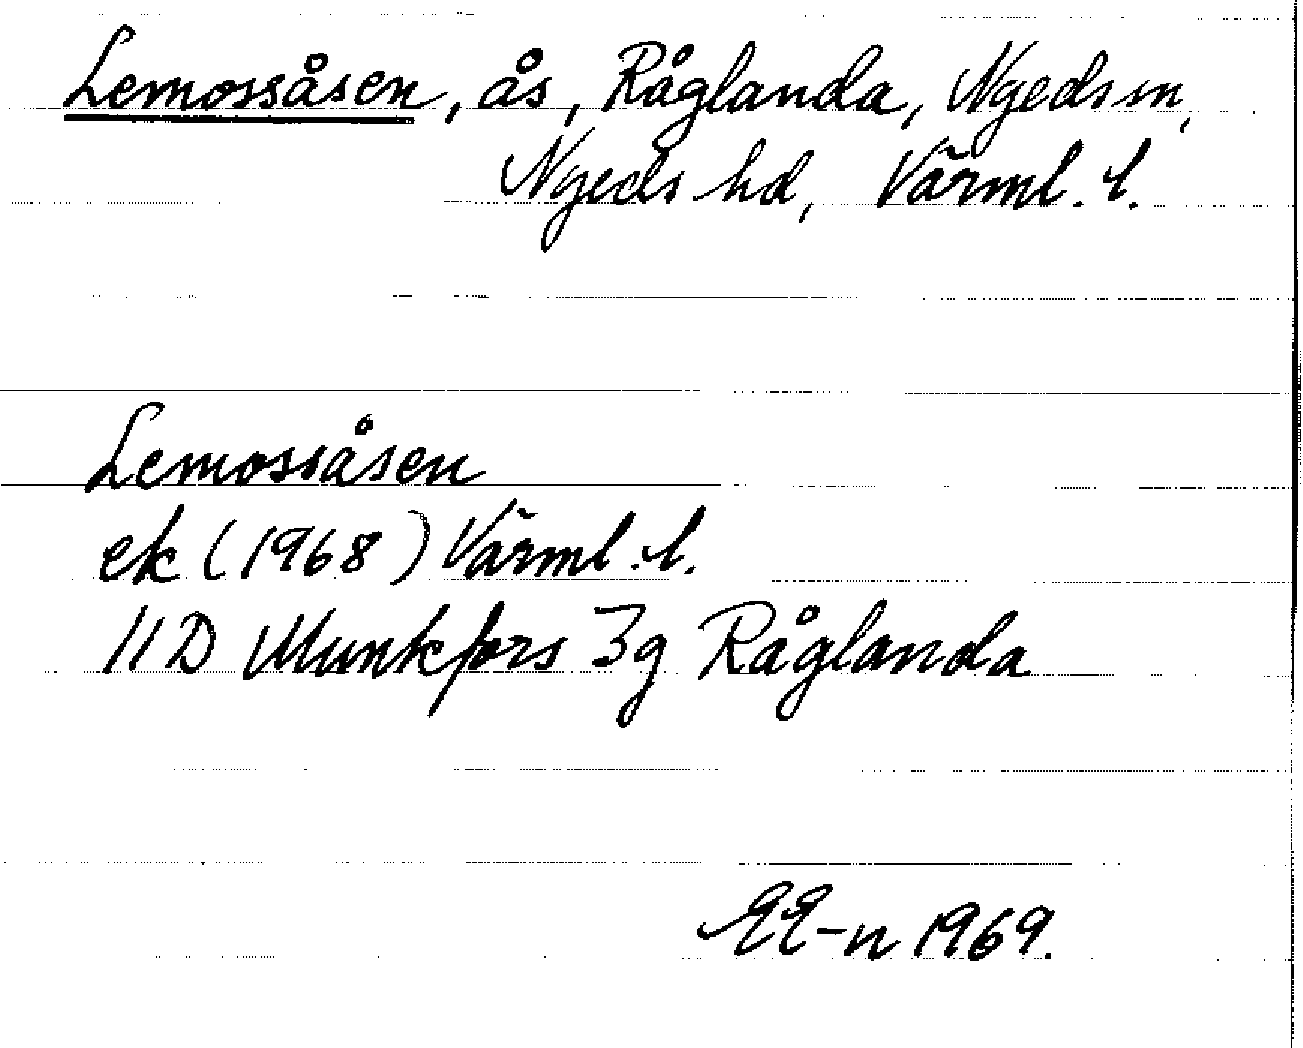 Lemossåsen, ås, Råglanda, Nyeds sn,
Nyeds hd, Värml. l.
Lemossåsen
ek (1968) Värml. l.
11D Munkfors 3g Råglanda
EE-n 1969.